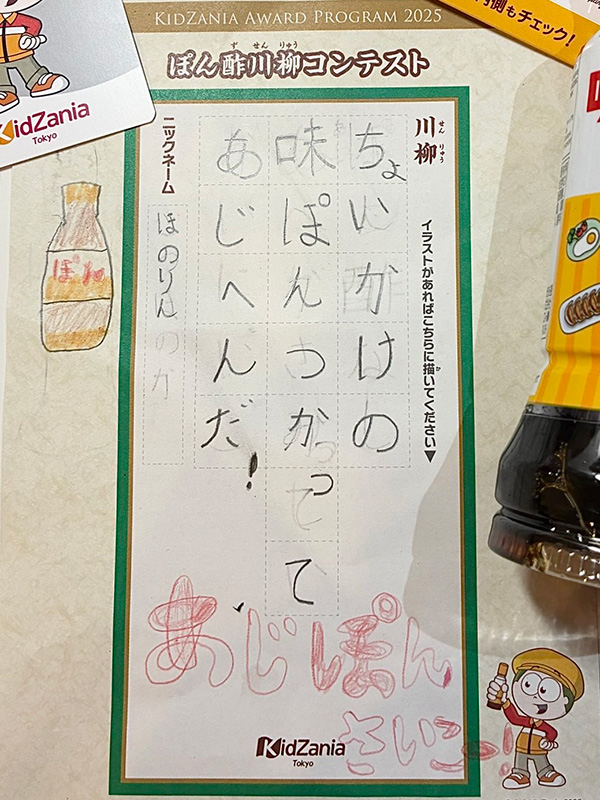 KIDZANIA AWARD PROGRAM 2025
側もチェック!
KidZania
Tokyo
ぽん酢川柳コンテスト
ず せん りゅう
川柳
せん りゅう
イラストがあればこちらに描いてください▼
か
ちょいかけの
味ぽんつかって
あじへんだ!
ニックネーム
ほのりん
ぽん
あじぽん
さいこー!
KidZania
Tokyo